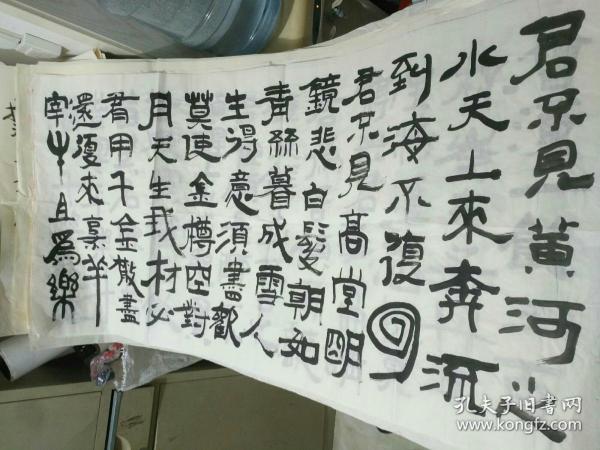 君不見黃河之
水天上來奔流
到海不復回
君不見高堂明
鏡悲白髮朝如
青絲暮成雪人
生得意須盡歡
莫使金樽空對
月天生我材必
有用千金散盡
還復來烹羊
宰牛且爲樂
孔夫子旧書网
www.kongfz.com